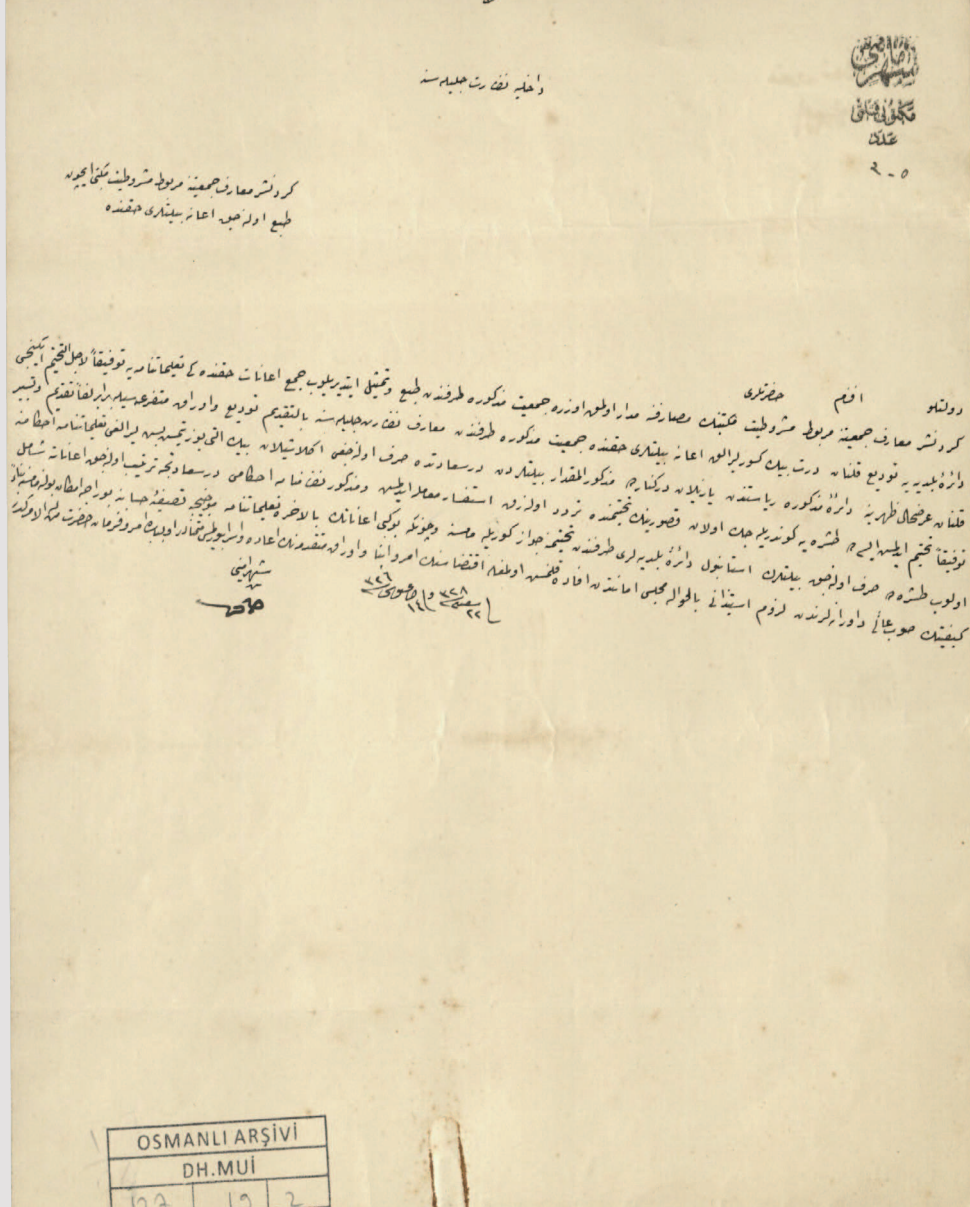 شهر امانتی
مکتوبی قلمی
عدد
٣٠٥
داخلیه نظارت جلیله سنه
کرد نشر معارف جمعیتنه مربوط مشروطیت مکتبی ایچون
طبع اولنه جق اعانه بیلتلری حقنده
دولتلو افندم حضرتلری
کرد نشر معارف جمعیتنه مربوط مشروطیت مکتبنك مصارفنه مدار اولمق اوزره جمعیت مذکوره طرفندن طبع وتمثیل ایتدیریلوب جمع اعانات حقنده کی تعلیماتنامه یه توفیقاً لاجل التختیم ایکنجی
دائرهٔ بلدیه یه تودیع قلنان درت بیك کسور لیرالق اعانه بیلتلری حقنده جمعیت مذکوره طرفندن معارف نظارت جلیله سنه بالتقدیم تودیع واوراق متفرعه سیله برابر لفاً تقدیم
قلنان عرضحال ظهرینه دائرهٔ مذکوره ریاستندن یازیلان درکنارده مذکور المقدار بیلتلردن درسعادتده صرف اوله جغی اکلاشیلان بیك التی یوز یتمش بش لیرالغی تعلیماتنامه احکامنه
توفیقاً تختیم ایدلمش ایسه ده طشره یه کوندریله جك اولان قصورینك تختیمنده تردد اولنه رق استفسار معامله ایدلمش ومذکور نظامنامه احکامی درسعادتجه ترتیب اوله جق اعاناته شامل
اولوب طشره ده صرف اوله جق بیلتلرك استانبول دائرهٔ بلدیه لری طرفندن تختیمنه جواز کوریله مامسنه وچونکه بوکبی اعاناتك بالاخره تعلیماتنامه موجبنجه تصفیهٔ حسابنه بوراجه امکان بوله مامسنه بناءً
کیفیتك صوب عالئ داورانه لرندن لزوم استیذانی بالحواله مجلس امانتدن افاده قلنمش اولمغله اقتضاسنك امر وانبا واوراق متقدمه نك اعاده واسرا بیورلمسی بابنده امر وفرمان حضرت من له الامرکدر
فی ٢٢ شعبان ٣٢٨ و فی ١٤ اغستوس ٣٢٦
شهر امینی
OSMANLI ARŞİVİ
DH.MUİ
127 19 2